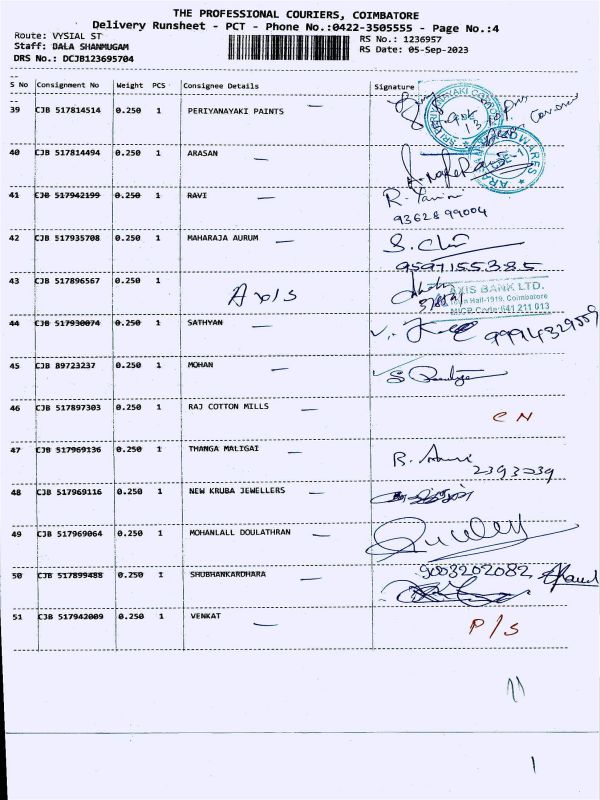 THE PROFESSIONAL COURIERS, COIMBATORE
Delivery Runsheet - PCT - Phone No.:0422-3505555 - Page No.:4
Route: VYSIAL ST RS No.: 1236957
Staff: BALA SHANMUGAM RS Date: 05-Sep-2023
DRS No.: DCJB123695704
S No Consignment No Weight PCS Consignee Details Signature
39 CJB 517814514 0.250 1 PERIYANAYAKI PAINTS
40 CJB 517814494 0.250 1 ARASAN
41 CJB 517942199 0.250 1 RAVI
9362899004
42 CJB 517935708 0.250 1 MAHARAJA AURUM
9597155385
43 CJB 517896567 0.250 1 Axis
AXIS BANK LTD.
Hall-1919, Coimbatore
MICR Code:641 211 013
44 CJB 517930074 0.250 1 SATHYAN 9994329559
45 CJB 89723237 0.250 1 MOHAN
46 CJB 517897303 0.250 1 RAJ COTTON MILLS CN
47 CJB 517969136 0.250 1 THANGA MALIGAI
2393039
48 CJB 517969116 0.250 1 NEW KRUBA JEWELLERS
49 CJB 517969064 0.250 1 MOHANLALL DOULATHRAN
50 CJB 517899488 0.250 1 SHUBHANKARDHARA 9003202082
51 CJB 517942009 0.250 1 VENKAT P/S